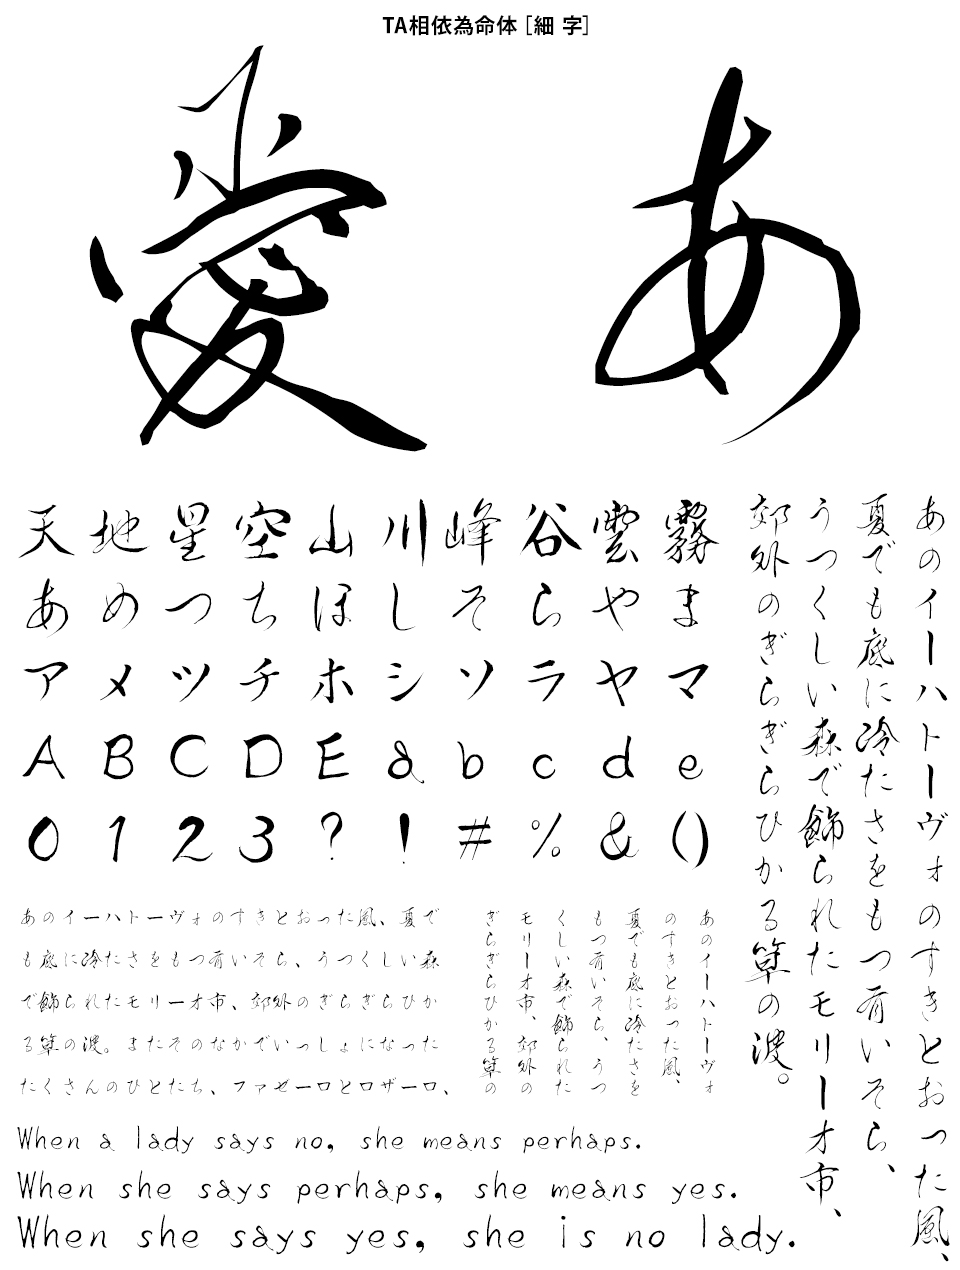 TA相依為命体 [細 字]
愛 あ
天地星空山川峰谷雲霧
あめつちほしそらやま
アメツチホシソラヤマ
ABCDEabcde
0123?!#%&()
あのイーハトーヴォのすきとおった風、
夏でも底に冷たさをもつ青いそら、
うつくしい森で飾られたモリーオ市、
郊外のぎらぎらひかる草の波。
あのイーハトーヴォのすきとおった風、夏で
も底に冷たさをもつ青いそら、うつくしい森
で飾られたモリーオ市、郊外のぎらぎらひか
る草の波。またそのなかでいっしょになった
たくさんのひとたち、ファゼーロとロザーロ、
あのイーハトーヴォ
のすきとおった風、
夏でも底に冷たさを
もつ青いそら、うつ
くしい森で飾られた
モリーオ市、郊外の
ぎらぎらひかる草の
When a lady says no, she means perhaps.
When she says perhaps, she means yes.
When she says yes, she is no lady.